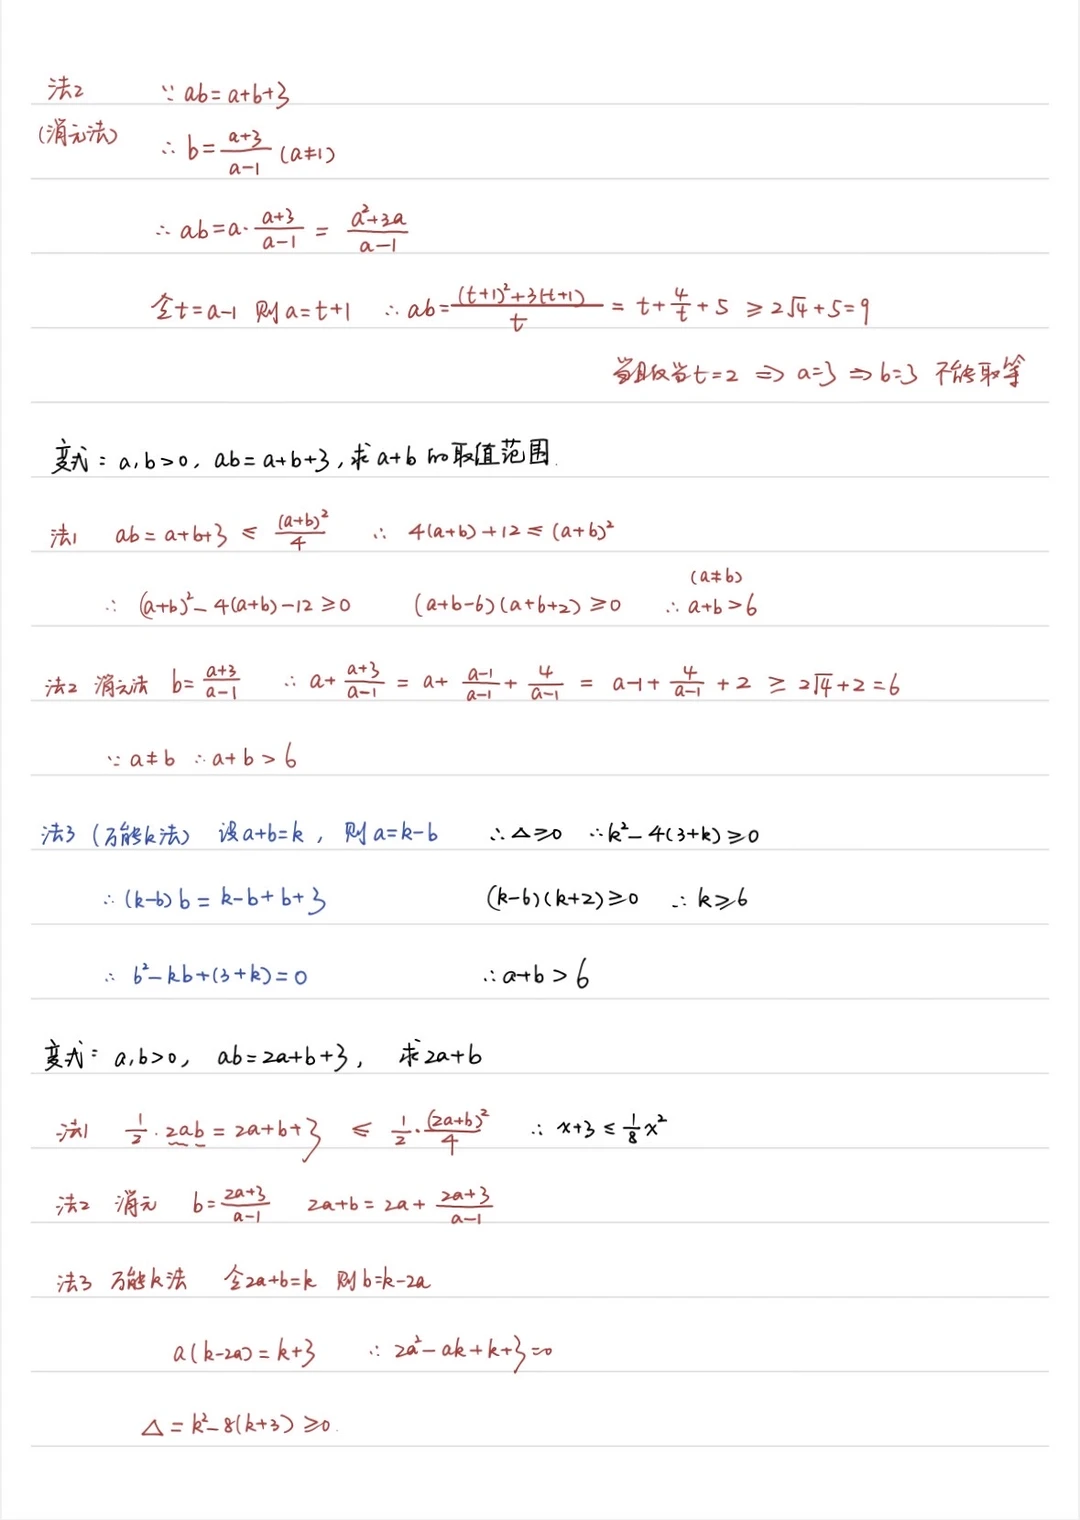 法2 ∵ ab=a+b+3
(消元法) ∴ b=\frac{a+3}{a-1} (a≠1)
∴ ab=a·\frac{a+3}{a-1} = \frac{a²+3a}{a-1}
令t=a-1 则a=t+1 ∴ ab=\frac{(t+1)²+3(t+1)}{t} = t+\frac{4}{t}+5 ≥ 2√4+5=9
当且仅当t=2 ⇒ a=3 ⇒ b=3 不能取等
变式: a,b>0, ab=a+b+3, 求a+b的取值范围.
法1 ab=a+b+3 ≤ \frac{(a+b)²}{4} ∴ 4(a+b)+12 ≤ (a+b)²
(a≠b)
∴ (a+b)²-4(a+b)-12≥0 (a+b-6)(a+b+2)≥0 ∴ a+b>6
法2 消元法 b=\frac{a+3}{a-1} ∴ a+\frac{a+3}{a-1} = a+\frac{a-1}{a-1}+\frac{4}{a-1} = a-1+\frac{4}{a-1}+2 ≥ 2√4+2=6
∵ a≠b ∴ a+b>6
法3 (万能k法) 设a+b=k, 则a=k-b ∴ △≥0 ∴ k²-4(3+k)≥0
∴ (k-b)b=k-b+b+3 (k-6)(k+2)≥0 ∴ k≥6
∴ b²-kb+(3+k)=0 ∴ a+b>6
变式: a,b>0, ab=2a+b+3, 求2a+b
法1 \frac{1}{2}·2ab=2a+b+3 ≤ \frac{1}{2}·\frac{(2a+b)²}{4} ∴ x+3≤\frac{1}{8}x²
法2 消元 b=\frac{2a+3}{a-1} 2a+b=2a+\frac{2a+3}{a-1}
法3 万能k法 令2a+b=k 则b=k-2a
a(k-2a)=k+3 ∴ 2a²-ak+k+3=0
△=k²-8(k+3)≥0.